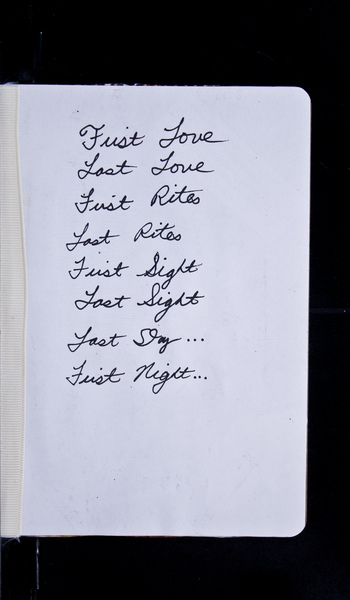 First Love
Last Love
First Rites
Last Rites
First Sight
Last Sight
Last Day...
First Night...